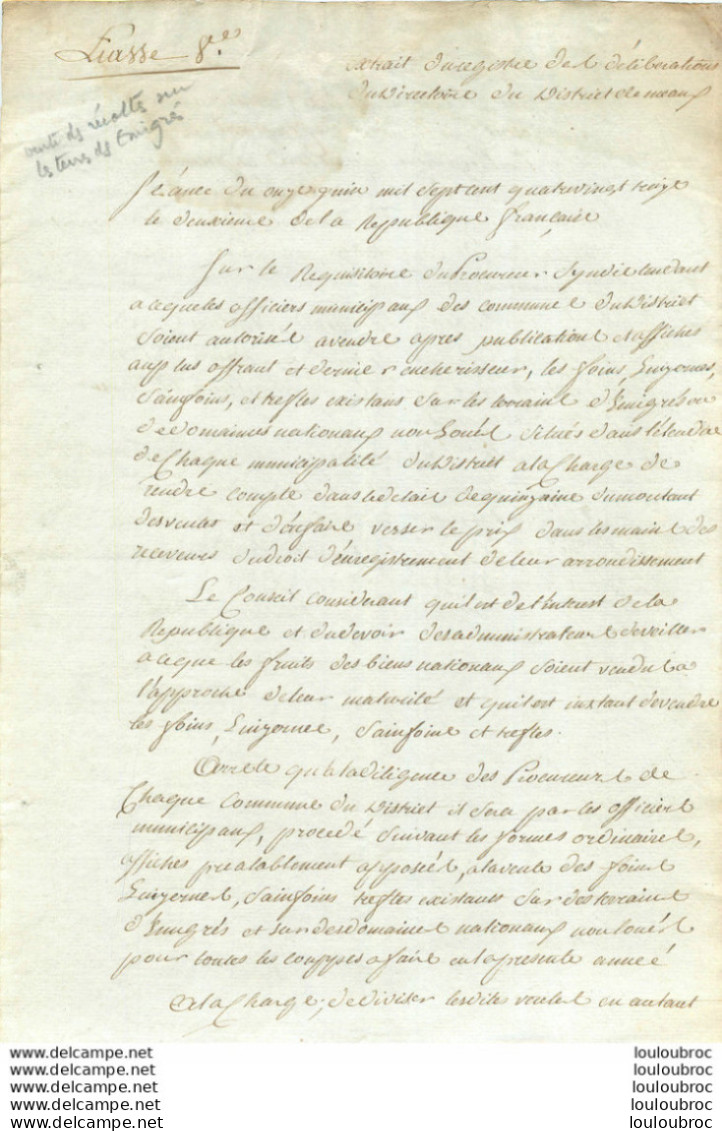 Liasse 8.e
extrait duregistre des délibérations
du Directoire du District de meaux
vente des récoltes sur
les terres des Emigrés
Séance du onze juin mil sept cent quatrevingt treize
le deuxieme dela Republique française
Sur le Requisitoire du Procureur Syndic tendant
aceque les officiers municipaux des communes du District
soient autorisés avendre apres publications et affiches
auplus offrant et dernier encherisseur, les foins, Luzernes,
Sainfoins, et trefles existans sur les terrains d'Emigrés ou
de domaines nationaux non loués situés dans l'étendue
de chaque municipalité du District ala charge de
rendre compte dans le delai de quinzaine du montant
des ventes et d'enfaire verser le prix dans les mains des
receveurs du droit d'enregistrement de leur arrondissement
Le Conseil considerant qu'il est de l'interest de la
Republique et du devoir des administrateurs de veiller
aceque les fruits des biens nationaux soient vendus a
l'approche de leur maturité et qu'il est instant de vendre
les foins, Luzernes, Sainfoins et trefles.
Arrete qu'a la diligence des Procureurs de
Chaque Commune du District il sera par les officiers
municipaux, procedé suivant les formes ordinaires,
affiches prealablement apposées, ala vente des foins
Luzernes, Sainfoins trefles existants sur des terrains
d'Emigrés et sur des domaines nationaux non loués
pour toutes les couppes a faire en la presente année
A la charge, de diviser lesdites ventes en autant
www.delcampe.net
www.delcampe.net
www.delcampe.net
www.delcampe.net
www.delcampe.net
louloubroc
louloubroc
louloubroc
louloubroc
louloubroc